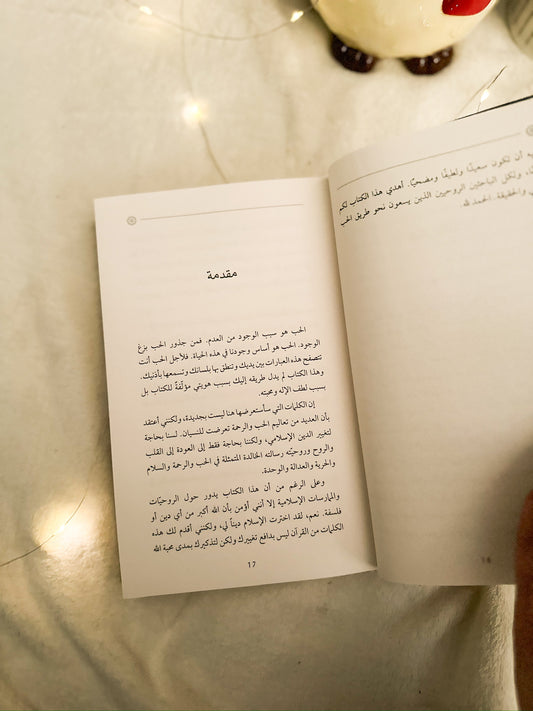 أن تكون سعيدًا ولطيفًا ومضحيًا. أهدي هذا الكتاب لكم
ولكل الباحثين الروحيين الذين يسعون نحو طريق الحب
والحقيقة. الحمد لله.
16
مقدمة
الحب هو سبب الوجود من العدم. فمن جذور الحب بزغ
الوجود. الحب هو أساس وجودنا في هذه الحياة. فلأجل الحب أنت
تتصفح هذه العبارات بين يديك وتنطق بها بلسانك وتسمعها بأذنيك.
وهذا الكتاب لم يدل طريقه إليك بسبب هويتي مؤلّفةً للكتاب بل
بسبب لطف الإله ومحبته.
إن الكلمات التي سأستعرضها هنا ليست بجديدة، ولكنني أعتقد
بأن العديد من تعاليم الحب والرحمة تعرضت للنسيان. لسنا بحاجة
لتغيير الدين الإسلامي، ولكننا بحاجة فقط إلى العودة إلى القلب
والروح وروحيّته رسالته الخالدة المتمثلة في الحب والرحمة والسلام
والحرية والعدالة والوحدة.
وعلى الرغم من أن هذا الكتاب يدور حول الروحيّات
والممارسات الإسلامية إلا أنني أؤمن بأن الله أكبر من أي دين أو
فلسفة. نعم، لقد اخترت الإسلام دينًا لي، ولكنني أقدم لك هذه
الكلمات من القرآن ليس بدافع تغييرك ولكن لتذكيرك بمدى محبة الله
17